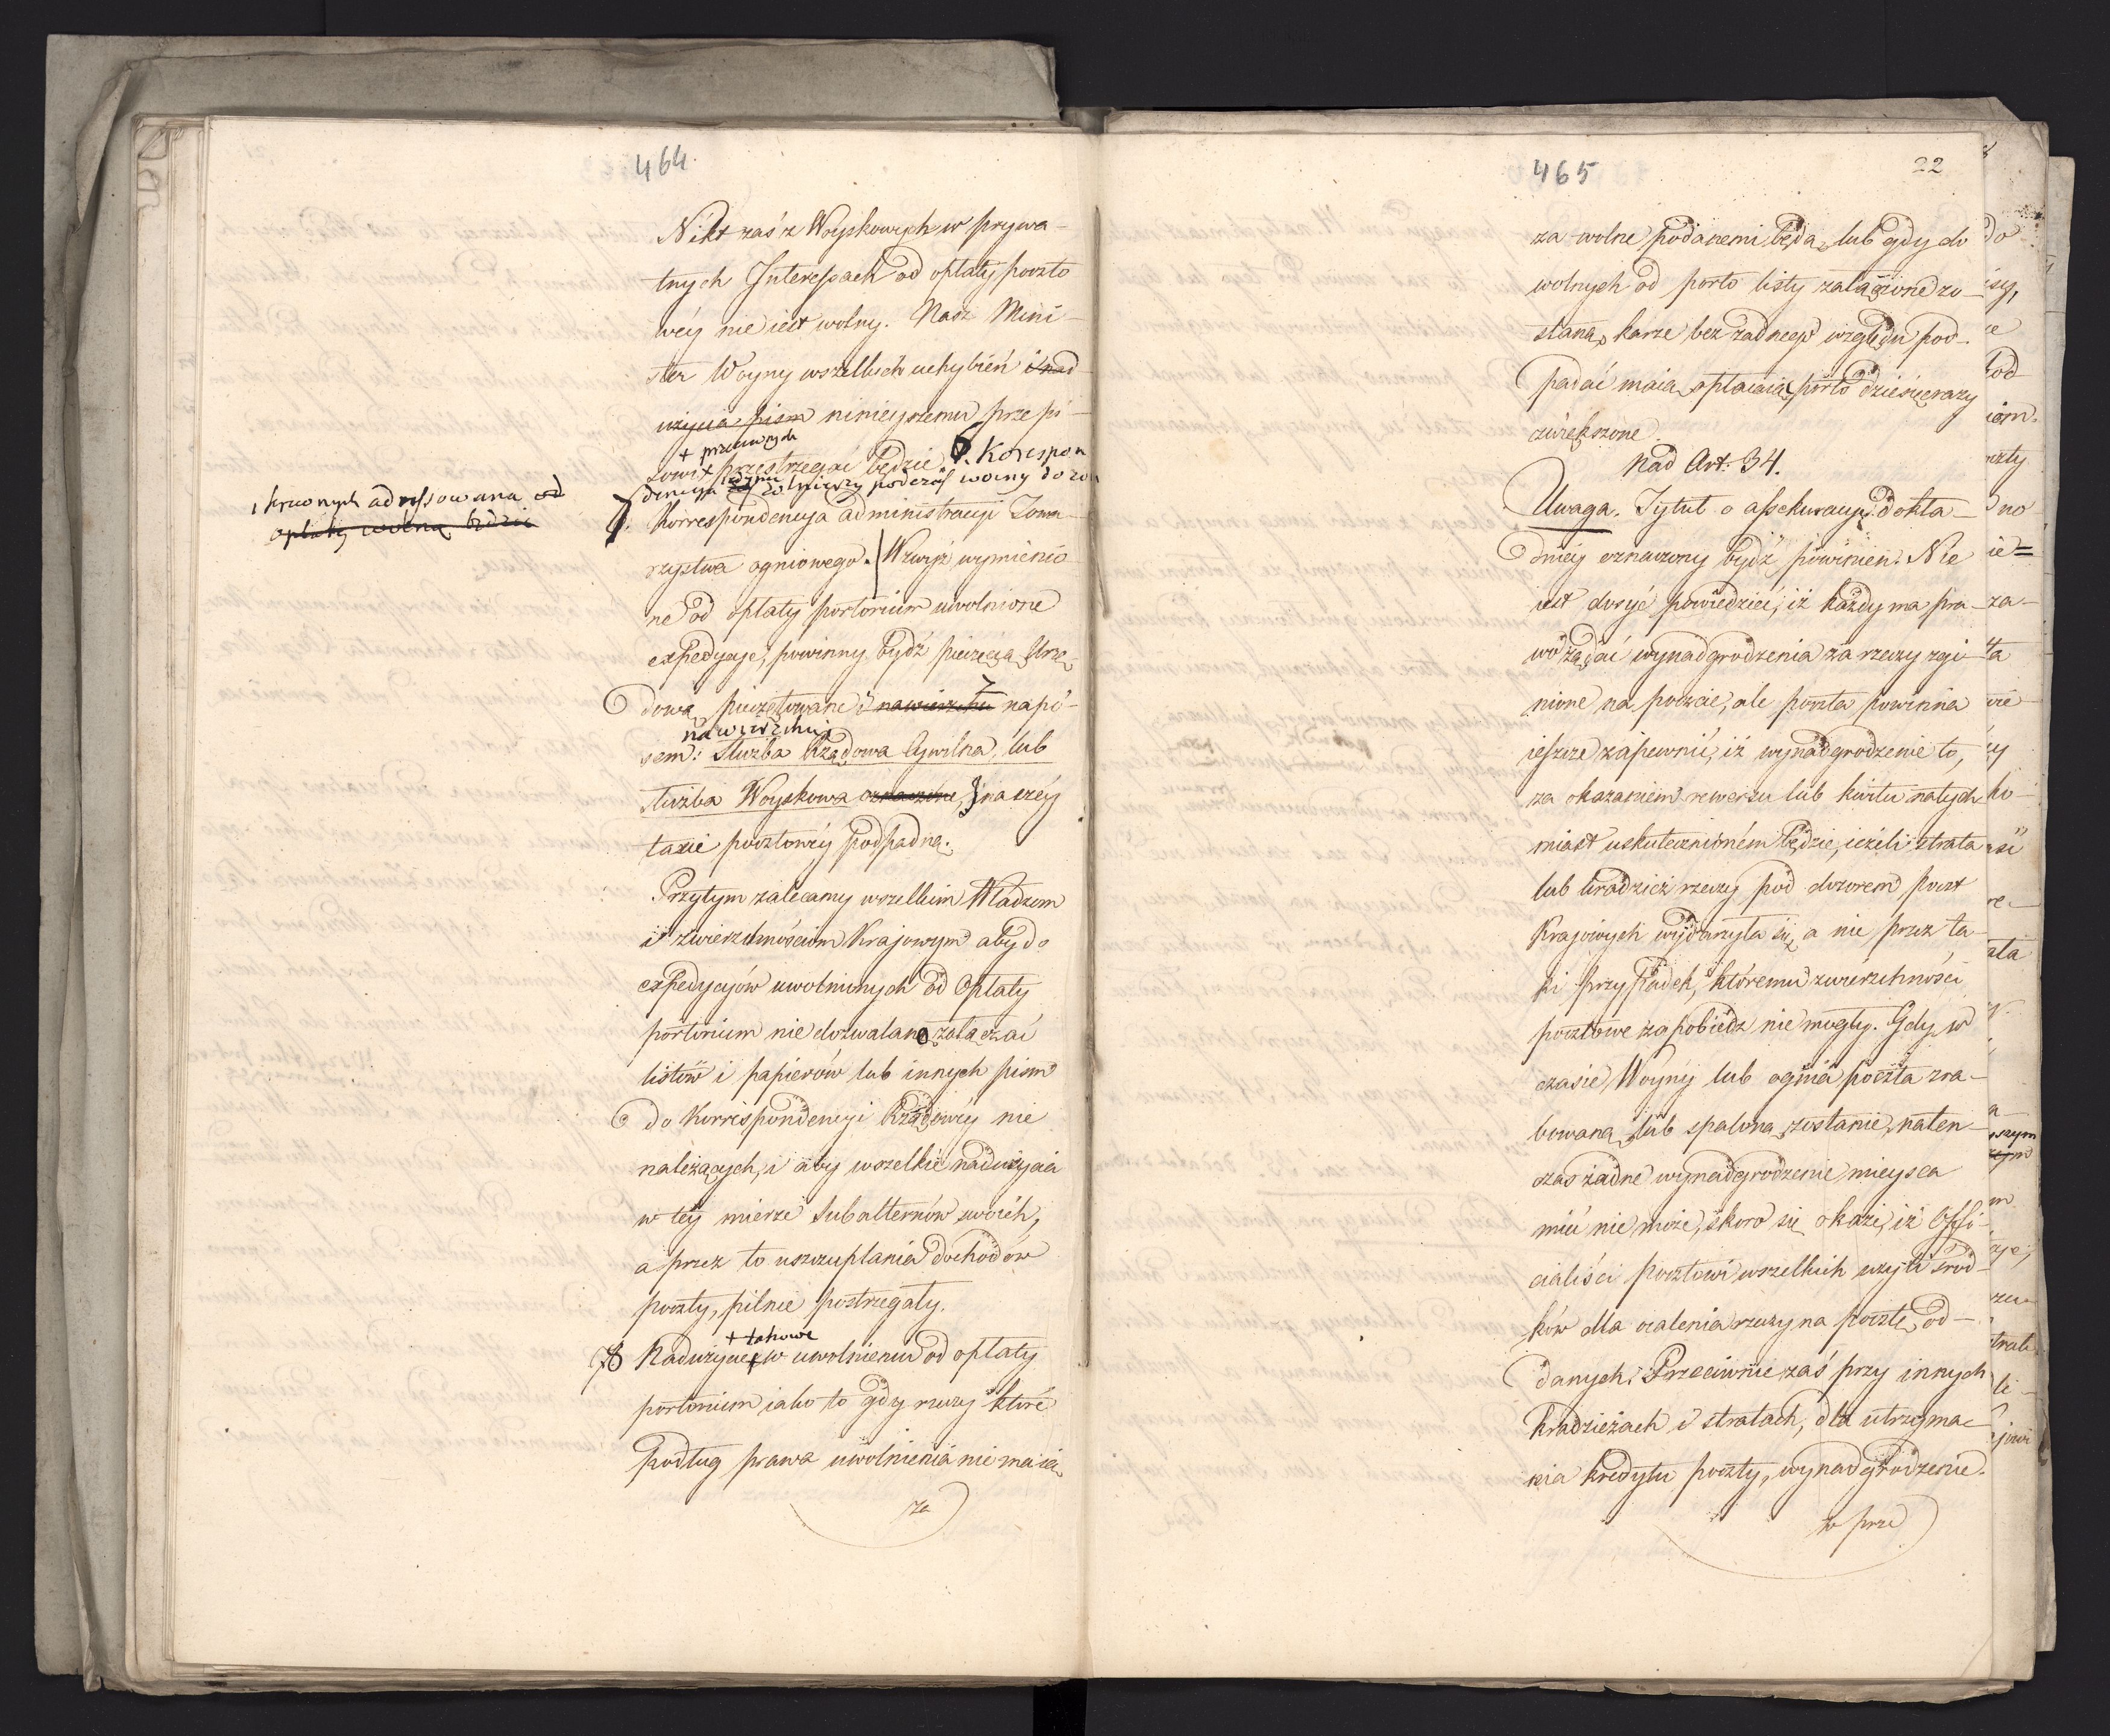 464.
Nikt zaś z Woyskowych w prywa-
tnych Interessach od opłaty poczto
wéy nie iest wolny. Nasz Mini-
ster Woyny wszelkich uchybień i nad
użycia pism ninieyszemu przepi-
+ przeciwnych
sowi + przestrzegać będzie. 6. Korespon
dencya żołnierzy podczas woiny do ro
krewnych adressowana od
opłaty wolną będzie
7. Korrespondencya administracyi Towa-
rzystwa ogniowego. Wzwyż wymienio
ne od opłaty portorium uwolnione
expedycye, powinny bydź pieczęcią Urzę-
dową pieczętowane i nawierzchu napi-
na wierzchu
sem: Służba Rządowa Cywilna, lub
służba Woyskowa oznaczone, inaczéy
taxie pocztowéy podpadną.
Przytym zalecamy wszelkim Władzom
i zwierzchnościom Krajowym aby do
expedycyów uwolnionych od Opłaty
portorium nie dozwalano załączać
listów i papierów lub innych pism
do Korrespondencyi Rządowéy nie
należących, i aby wszelkie nadużycia
w téy mierze Subalternów swoich,
a przez to uszczuplania dochodów
poczty, pilnie postrzegały.
+ takowe
8 Nadużycie + w uwolnieniu od opłaty
portorium iako to gdy rzeczy które
podług prawa uwolnienia nie maią
za
465
22
za wolne podanemi będą, lub gdy do
wolnych od porto listy załączone zo-
staną, karze bez żadnego względu pod-
padać maią opłacaiąc porto dziesięć razy
zwiększone.
Nad Art. 34.
Uwaga. Tytuł o assekuracyi dokła-
dniéy oznaczony bydź powinien. Nie
iest dosyć powiedzieć, iż każdy ma pra-
wo żądać wynadgrodzenia za rzeczy zgi-
nione na poczcie, ale poczta powinna
ieszcze zapewnić, iż wynadgrodzenie to,
za okazaniem rewersu lub kwitu natych
miast uskutecznioném będzie, ieżeli strata
lub kradzież rzeczy pod dozorem poczt
Krajowych wydarzyła się, a nie przez ta-
ki przypadek, któremu zwierzchności
pocztowe zapobiedz nie mogły. Gdy w
czasie Woyny lub ognia poczta zra-
bowaną lub spaloną zostanie, naten-
czas żadne wynadgrodzenie mieysca
mieć nie może, skoro się okaże, iż Offi-
cialiści pocztowi wszelkich użyli środ-
ków dla ocalenia rzeczy na pocztę od-
danych. Przeciwnie zaś przy innych
kradzieżach i stratach, dla utrzyma-
nia kredytu poczty, wynadgrodzenie
w prze